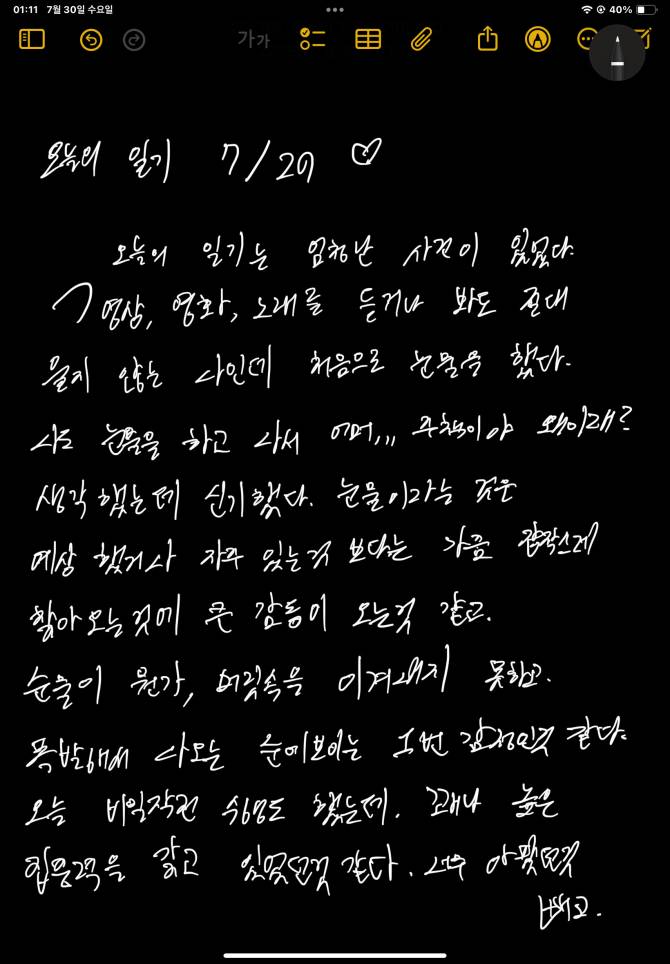 01:11 7월 30일 수요일
40%
가가
오늘의 일기 7/29 ♡
오늘의 일기는 엄청난 사건이 있었다.
영상, 영화, 노래를 듣거나 봐도 절대
울지 않는 나인데 처음으로 눈물을 했다.
나도 눈물을 하고 나서 어머,,, 주책이야 왜이래?
생각했는데 신기했다. 눈물이라는 것은
예상 했거나 자주 있는것 보다는 가끔 갑작스레
찾아오는것에 큰 감동이 오는것 같고.
눈물이 뭔가, 머릿속을 이겨내지 못하고.
폭발해서 나오는 눈에보이는 그런 감정인것 같다.
오늘 비밀작전 수행도 했는데. 꽤나 높은
집중력을 갖고 있었던것 같다. 너무 아팠던것
빼고.